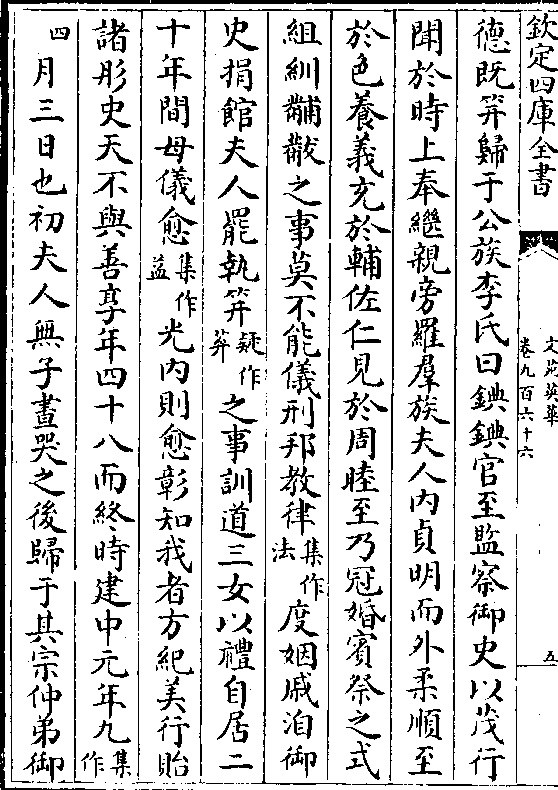 欽定四庫全書
文苑英華
卷九百六十六
五
德既笄歸于公族李氏曰錪錪官至監察御史以茂行
聞於時上奉繼親旁羅羣族夫人内貞明而外柔順至
於色養義充於輔佐仁見於周睦至乃冠婚賓祭之式
組紃黼黻之事莫不能儀刑邦教律集作法度姻戚洎御
史捐館夫人罷執笄疑作葬之事訓道三女以禮自居二
十年間母儀愈集作益光内則愈彰知我者方紀美行貽
諸彤史天不與善享年四十八而終時建中元年九集作
四月三日也初夫人無子晝哭之後歸于其宗仲弟御